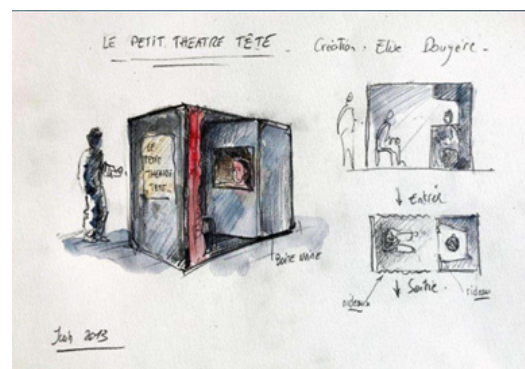 LE PETIT THEATRE TÊTE - Création : Elise Dougère -
LE
PETIT
THEATRE
TETE
BOITE NOIRE
↓ Entrée
↓ Sortie.
rideaux
rideau
Juin 2013